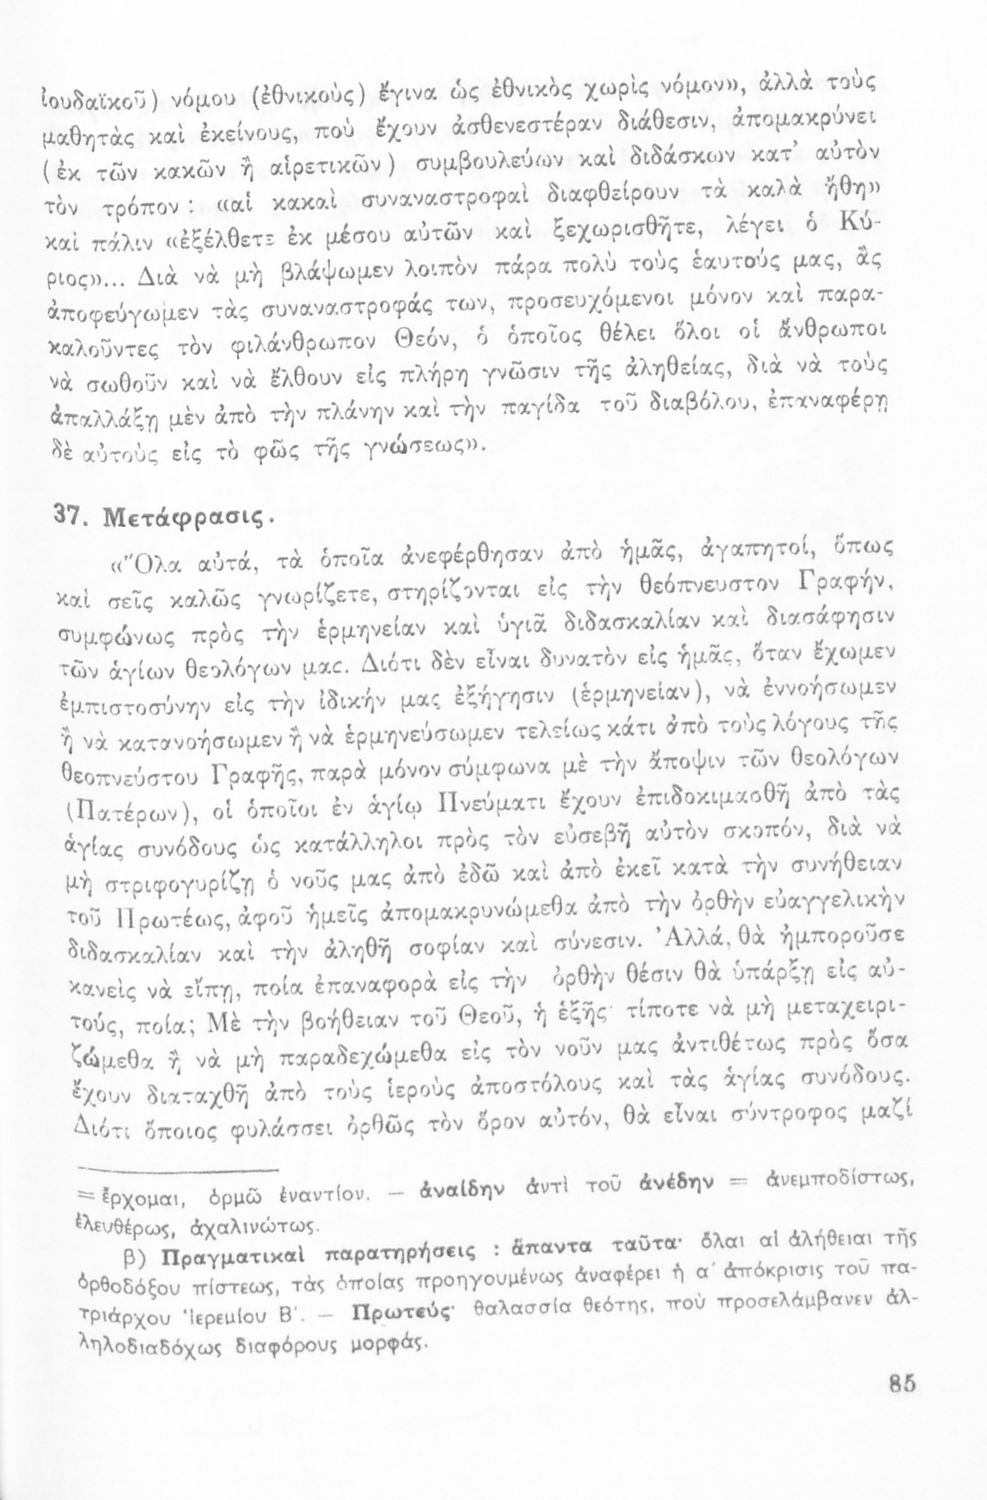 ἰουδαϊκοῦ) νόμου (ἐθνικοὺς) ἔγινα ὡς ἐθνικὸς χωρὶς νόμον», ἀλλὰ τοὺς
μαθητὰς καὶ ἐκείνους, ποὺ ἔχουν ἀσθενεστέραν διάθεσιν, ἀπομακρύνει
(ἐκ τῶν κακῶν ἢ αἱρετικῶν) συμβουλεύων καὶ διδάσκων κατ' αὐτὸν
τὸν τρόπον : «αἱ κακαὶ συναναστροφαὶ διαφθείρουν τὰ καλὰ ἤθη»
καὶ πάλιν «ἐξέλθετε ἐκ μέσου αὐτῶν καὶ ξεχωρισθῆτε, λέγει ὁ Κύ-
ριος»... Διὰ νὰ μὴ βλάψωμεν λοιπὸν πάρα πολὺ τοὺς ἑαυτούς μας, ἂς
ἀποφεύγωμεν τὰς συναναστροφάς των, προσευχόμενοι μόνον καὶ παρα-
καλοῦντες τὸν φιλάνθρωπον Θεόν, ὁ ὁποῖος θέλει ὅλοι οἱ ἄνθρωποι
νὰ σωθοῦν καὶ νὰ ἔλθουν εἰς πλήρη γνῶσιν τῆς ἀληθείας, διὰ νὰ τοὺς
ἀπαλλάξῃ μὲν ἀπὸ τὴν πλάνην καὶ τὴν παγίδα τοῦ διαβόλου, ἐπαναφέρῃ
δὲ αὐτοὺς εἰς τὸ φῶς τῆς γνώσεως».
37. Μετάφρασις.
«Ὅλα αὐτά, τὰ ὁποῖα ἀνεφέρθησαν ἀπὸ ἡμᾶς, ἀγαπητοί, ὅπως
καὶ σεῖς καλῶς γνωρίζετε, στηρίζονται εἰς τὴν θεόπνευστον Γραφήν,
συμφώνως πρὸς τὴν ἑρμηνείαν καὶ ὑγιᾶ διδασκαλίαν καὶ διασάφησιν
τῶν ἁγίων θεολόγων μας. Διότι δὲν εἶναι δυνατὸν εἰς ἡμᾶς, ὅταν ἔχωμεν
ἐμπιστοσύνην εἰς τὴν ἰδικήν μας ἐξήγησιν (ἑρμηνείαν), νὰ ἐννοήσωμεν
ἢ νὰ κατανοήσωμεν ἢ νὰ ἑρμηνεύσωμεν τελείως κάτι ἀπὸ τοὺς λόγους τῆς
θεοπνεύστου Γραφῆς, παρὰ μόνον σύμφωνα μὲ τὴν ἄποψιν τῶν θεολόγων
(Πατέρων), οἱ ὁποῖοι ἐν ἁγίῳ Πνεύματι ἔχουν ἐπιδοκιμασθῆ ἀπὸ τὰς
ἁγίας συνόδους ὡς κατάλληλοι πρὸς τὸν εὐσεβῆ αὐτὸν σκοπόν, διὰ νὰ
μὴ στριφογυρίζῃ ὁ νοῦς μας ἀπὸ ἐδῶ καὶ ἀπὸ ἐκεῖ κατὰ τὴν συνήθειαν
τοῦ Πρωτέως, ἀφοῦ ἡμεῖς ἀπομακρυνώμεθα ἀπὸ τὴν ὀρθὴν εὐαγγελικὴν
διδασκαλίαν καὶ τὴν ἀληθῆ σοφίαν καὶ σύνεσιν. Ἀλλά, θὰ ἠμποροῦσε
κανεὶς νὰ εἴπῃ, ποία ἐπαναφορὰ εἰς τὴν ὀρθὴν θέσιν θὰ ὑπάρξῃ εἰς αὐ-
τούς, ποία; Μὲ τὴν βοήθειαν τοῦ Θεοῦ, ἡ ἑξῆς· τίποτε νὰ μὴ μεταχειρι-
ζώμεθα ἢ νὰ μὴ παραδεχώμεθα εἰς τὸν νοῦν μας ἀντιθέτως πρὸς ὅσα
ἔχουν διαταχθῆ ἀπὸ τοὺς ἱεροὺς ἀποστόλους καὶ τὰς ἁγίας συνόδους.
Διότι ὅποιος φυλάσσει ὀρθῶς τὸν ὅρον αὐτόν, θὰ εἶναι σύντροφος μαζί
= ἔρχομαι, ὁρμῶ ἐναντίον. — ἀναίδην ἀντὶ τοῦ ἀνέδην = ἀνεμποδίστως,
ἐλευθέρως, ἀχαλινώτως.
β) Πραγματικαὶ παρατηρήσεις : ἅπαντα ταῦτα· ὅλαι αἱ ἀλήθειαι τῆς
ὀρθοδόξου πίστεως, τὰς ὁποίας προηγουμένως ἀναφέρει ἡ α' ἀπόκρισις τοῦ πα-
τριάρχου Ἱερεμίου Β'. — Πρωτεύς· θαλασσία θεότης, ποὺ προσελάμβανεν ἀλ-
ληλοδιαδόχως διαφόρους μορφάς.
85